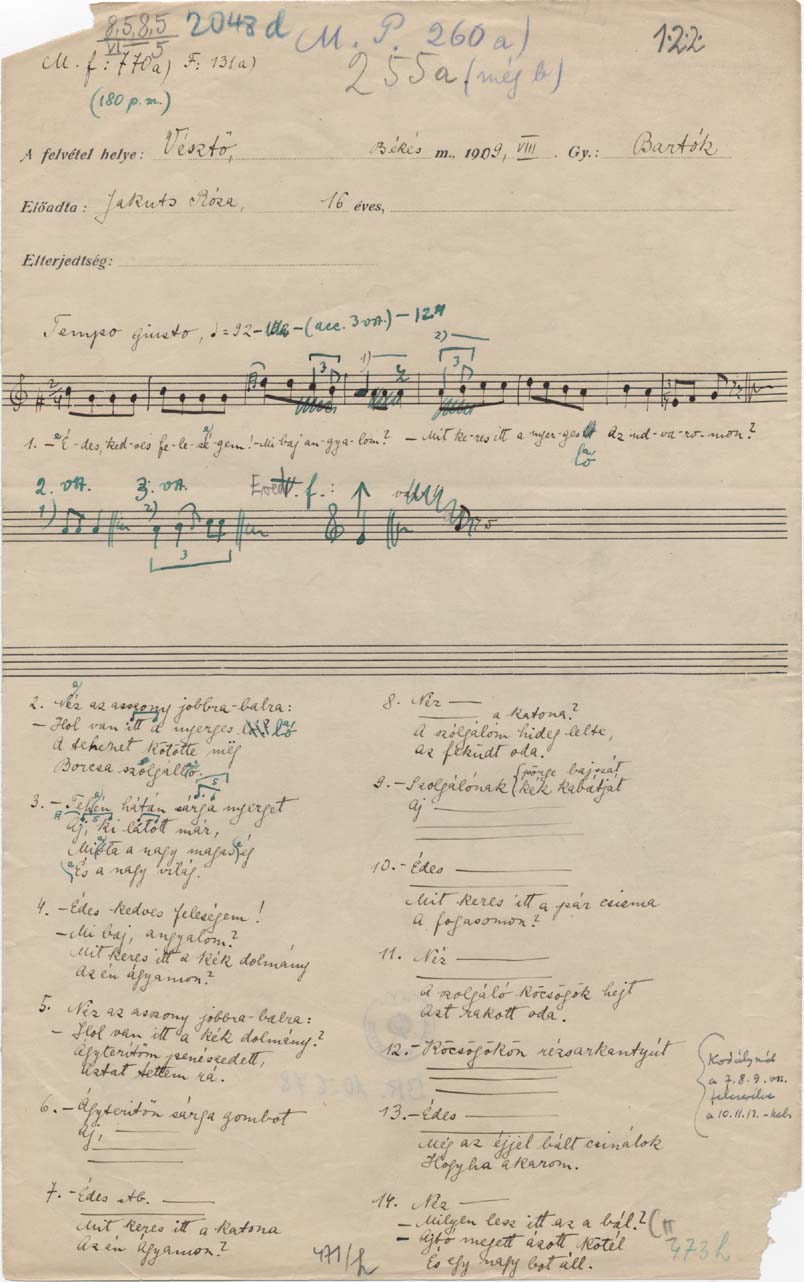 8,5,8,5 2048 d M. P. 260a) 1.2.2.
VI 5
M. f: 770a) F: 131a) 255a (még b)
(180 p.m.)
A felvétel helye: Vésztő, Békés m., 1909, VIII. Gy.: Bartók
Előadta: Jakuts Róza, 16 éves,
Elterjedtség:
Tempo giusto, ♩=92- -(acc. 3 va.)-124
3 1) 2) 3
1. - É-des, ked-ves fe-le-sé-gem! - Mi baj an-gya-lom? - Mit ke-res itt a nyer-ges ló Az ud-va-ro-mon?
2. va. 3. va. Ered. f.:
1) 2)
3
2. Néz az asszony jobbra-balra:
- Hol van itt a nyerges ló?
A tehenet kötötte még
Borcsa szolgáltó.
3. - Tehén hátán sárga nyerget
Áj, ki látott már,
Mióta a nagy magaség
És a nagy világ.
4. - Édes kedves feleségem!
- Mi baj, angyalom?
Mit keres itt a kék dolmány
Az én ágyamon?
5. Néz az asszony jobbra-balra:
- Hol van itt a kék dolmány?
Ágyterítőm penészedett,
Aztat tettem rá.
6. - Ágyterítőn sárga gombot
Áj,
7. - Édes stb.
Mit keres itt a katona
Az én ágyamon?
8. Néz
a katona?
A szolgálóm hideg-lelte,
Az feküdt oda.
9. - Szolgálónak {pörge bajszát
kék kabátját
Áj
10. - Édes
Mit keres itt a pár csizma
A fogasomon?
11. Néz
A szolgáló köcsögök hejt
Azt rakott oda.
12. - Köcsögökön rézsarkantyút
Kodálynál
a 7. 8. 9. va.
felcserélve
a 10. 11. 12.
13. - Édes
Még az éjjel bált csinálok
Hogyha akarom.
14. Néz
- Milyen lesz itt az a bál?
- Ajtó megett ázott kötél
És egy nagy bot áll.
471/h 473 h